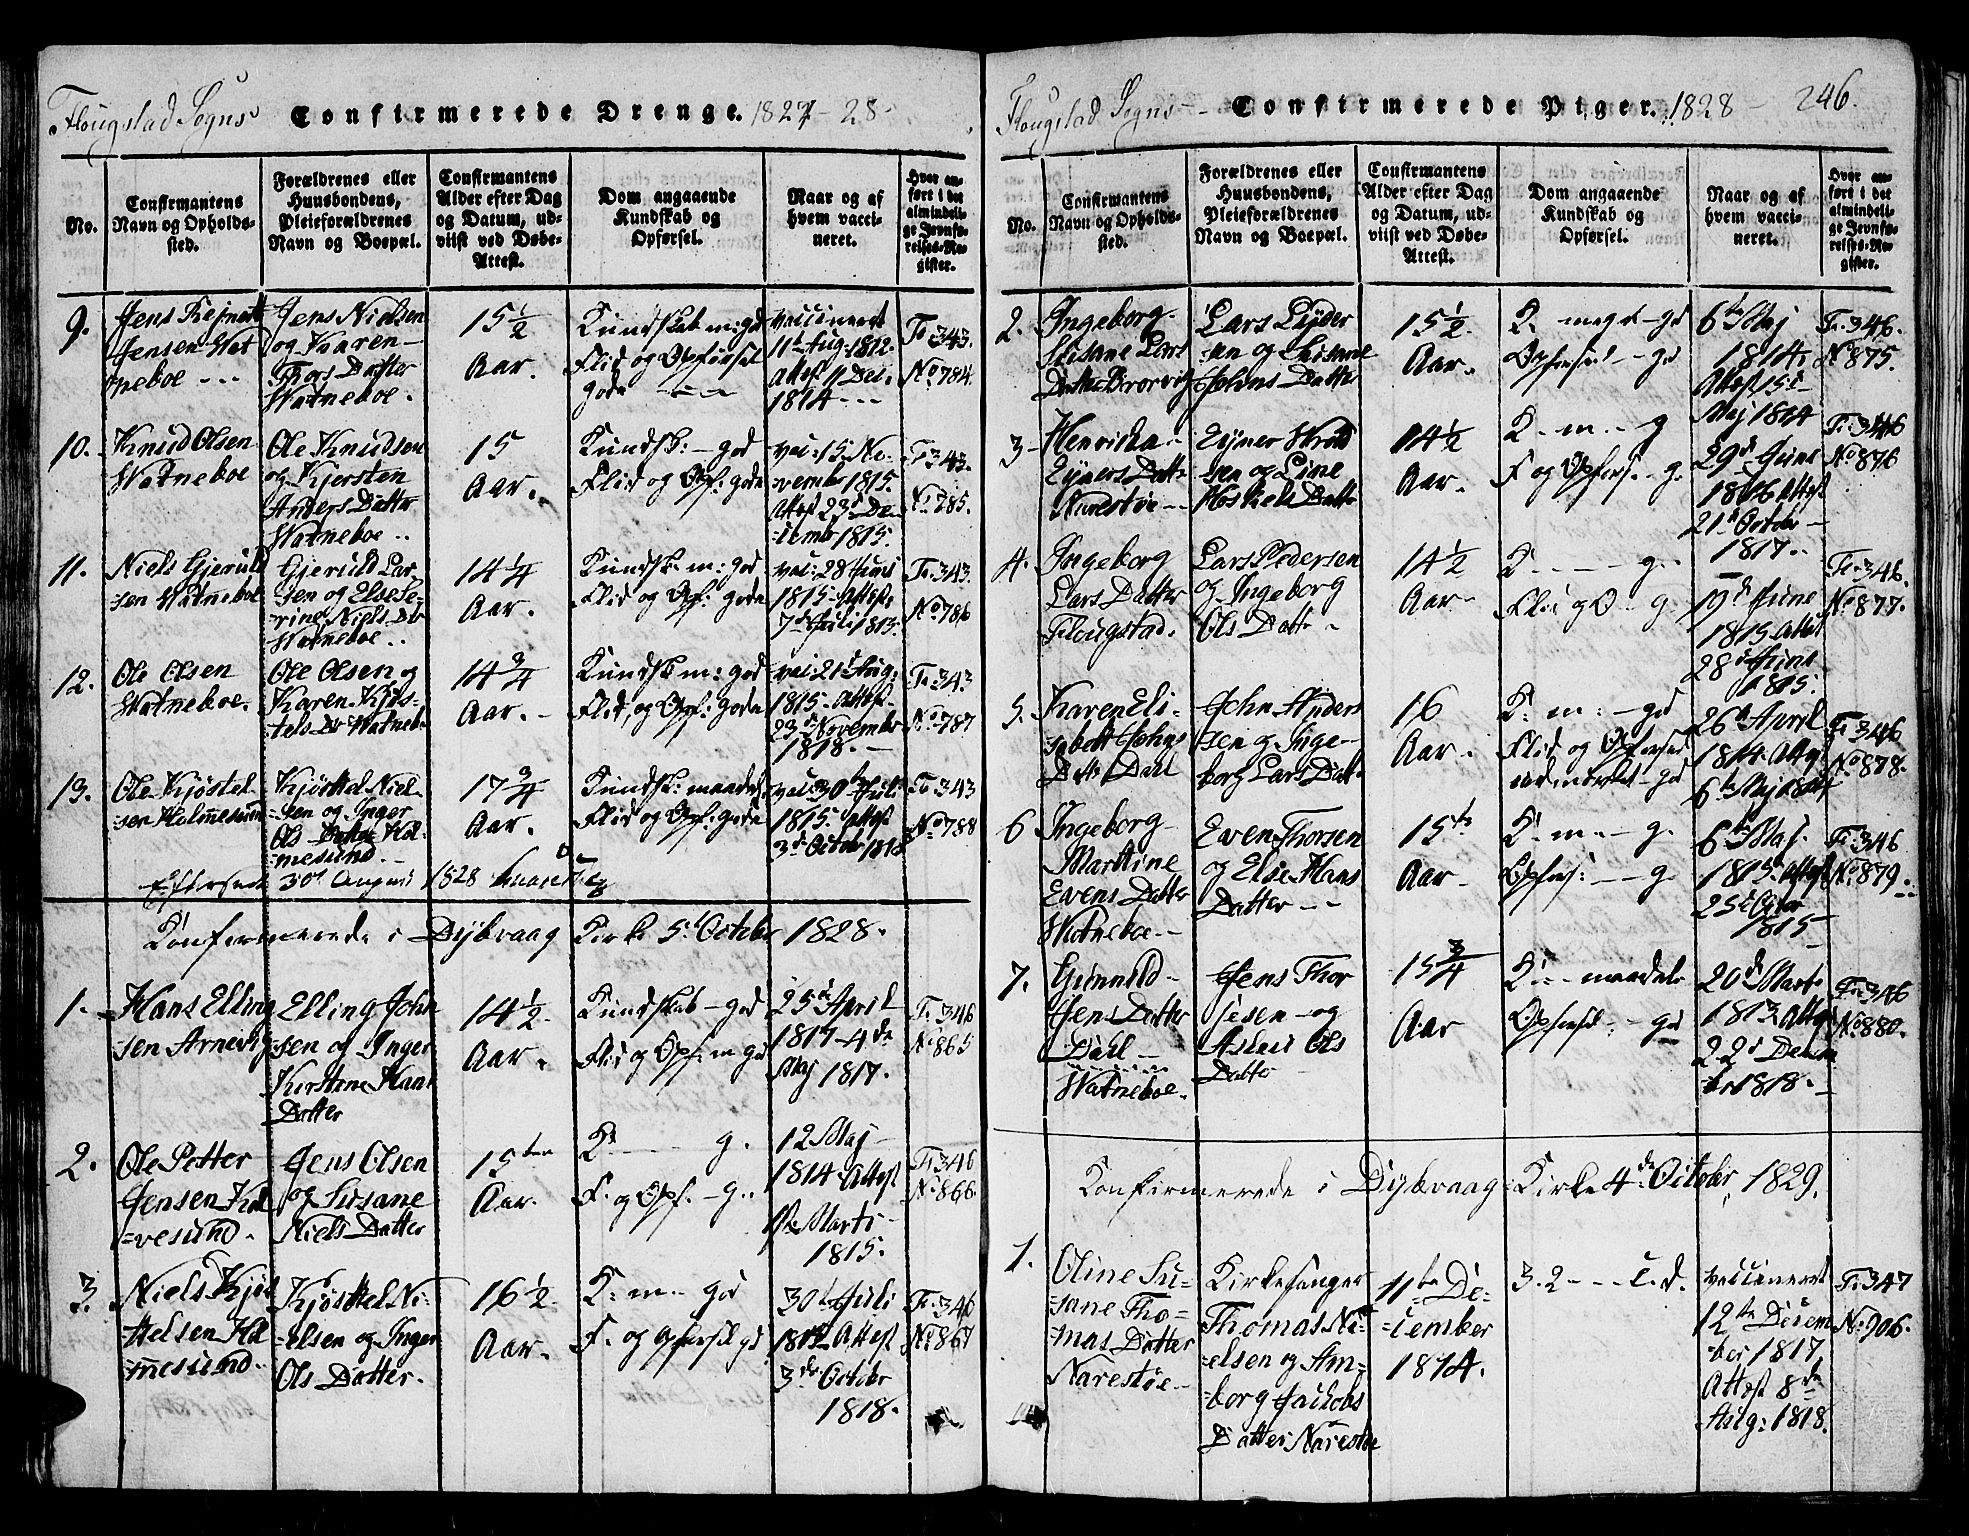 Flougstad Sogns Confirmerede Drenge. 1827-28.
No.
Confirmantens
Navn og Opholds-
sted.
Forældrenes eller
Huusbondens,
Pleieforældrenes
Navn og Boepæl.
Confirmantens
Alder efter Dag
og Datum, ud-
viist ved Døbe-
Attest.
Dom angaaende
Kundskab og
Opførsel.
Naar og af
hvem vacci-
neret.
Hvor an-
ført i det
almindeli-
ge Jevnfø-
relses-Re-
gister.
9.
Jens
Jensen Wat
neboe
Jens Nielsen
og Karen
Thors Datter
Watneboe.
15 1/2
Aar.
Kundskab m: god
Flid og Opførsel
gode
vaccineret
11te Aug: 1812.
Attest 11 Dec.
1814
F. 343.
No 784.
10.
Knud Olsen
Watneboe
Ole Knudsen
og Kjersten
Anders Datter
Watneboe ..
15
Aar.
Kundsk: - god
Flid og Opf: gode
vac: 15. No-
vembr 1815.
Attest 23de De-
cembr 1815.
F. 343.
No 785.
11.
Niels Gjeruld
sen Watneboe
Gjeruld Lar-
sen og Else Se-
rine Niels Dr
Watneboe ..
14 1/4
Aar.
Kundsk m: god
Flid og Opf: gode
vac: 28 Juni
1815. Attest
7de Juli 1813.
F. 343.
No 786
12.
Ole Olsen
Watneboe.
Ole Olsen og
Karen Kjøs-
tels Dr Watneboe
14 3/4
Aar.
Kundsk m: god
Flid, og Opf: gode
vac: 21de Aug:
1815. Attest
23de Novembr
1818.
F. 343
No 787
13.
Ole Kjøstel
sen Holmesund
Kjøstel Niel-
sen og Inger
Ols Datter Hol-
mesund.
17 3/4
Aar.
Kundsk: maadel.
Flid og Opf: gode
vac: 30te Juli
1815. Attest
3de Octobr 1818
F. 343
No 788
30te August 1828
Konfirmerede i Dybvaag Kirke 5te Octobr 1828.
1.
Hans Elling
sen Arnevig
Elling John
sen og Inger
Kirstine Hans
Datter
14 1/2
Aar.
Kundskab - god
Flid og Opf: m god
25de April
1817 - 4de
Maj 1817.
F. 346
No 865
2.
Ole Petter
Jensen Kal
vesund.
Jens Olsen
og Susane
Niels Datter
15ten
Aar.
K g.
F. og Opf. - g.
12 Maj
1814 Attest
Marts
1815.
F. 346
No 866.
3.
Niels Kjøs
telsen Hol
mesund.
Kjøstel Ni-
elsen og Inger
Ols Datter.
16 1/2
Aar.
K: m god
F. og Opførsel gd
30te Juli
Attest
3de Octobr
1818.
F. 346
No 867
Flougstad Sogns Confirmerede Piger. 1828 246.
No.
Confirmantens
Navn og Opholds-
sted.
Forældrenes eller
Huusbondens,
Pleieforældrenes
Navn og Boepæl.
Confirmantens
Alder efter Dag
og Datum, ud-
viist ved Døbe-
Attest.
Dom angaaende
Kundskab og
Opførsel.
Naar og af
hvem vacci-
neret.
Hvor an-
ført i det
almindeli-
ge Jevnfø-
relses-Re-
gister.
2.
Ingeborg
Susane Lars
Datter
Lars
sen og Susane
Johns Datter
15 1/2
Aar.
K. meget gd
Opførsel gd
6te Maj
1814.
Attest 15de
Maj 1814
F. 346.
No 875.
3
Henricka
Eyners Dattr
Narestøe
Eyner
sen og Line
Datter
14 1/2
Aar.
K. m. g
F og Opførs. g.
29de Juni
1816 Attest
21de Octobr
1817.
F. 346
No 876
4.
Ingeborg
Lars Datter
Flougstad.
Lars Pedersen
og Ingeborg
Ols Dattr
14 1/2
Aar.
K. g.
Flid og O g.
19de June
1815 Attest
28de Juni
1815.
F. 346.
No 877.
5.
Karen Eli-
sabett Johns
Dattr Dahl
John Anders
sen og Inge-
borg Lars Dattr
16
Aar.
K. m: - gd
Flid og Opførsel
udmerket gd
26de April
1814 Attest
6te Maj 1814
F. 346
No 878.
6
Ingeborg
Marttine
Evens Datter
Watneboe
Even Thorsen
og Else Hans
Datter
15te
Aar
K. m. g.
Opførs: g.
6te Maj.
1815. Attest
25de
1815
F. 346
No 879.
7.
Gunnild
Jens Datter
Dahl
Watneboe.
Jens Thor
jesen og
Aslau Ols
Datter
15 3/4
Aar
K. maadel.
Opførsel: - gd
20de Marts
1813. Attest
22de Decem
br 1818.
F. 346
No 880.
Konfirmerede i Dybvaag Kirke 4de Octobr 1829.
1.
Oline Su-
sane Tho-
mas Datter
Narestøe
Kirkesanger
Thomas Ni-
elsen og Am-
borg Jacobs
Datter Narestøe
11te De-
cember
1814.
3.2
vaccineret
12te Decem
ber 1817
Attest 8de
Aug: 1818.
F. 347
No 906.